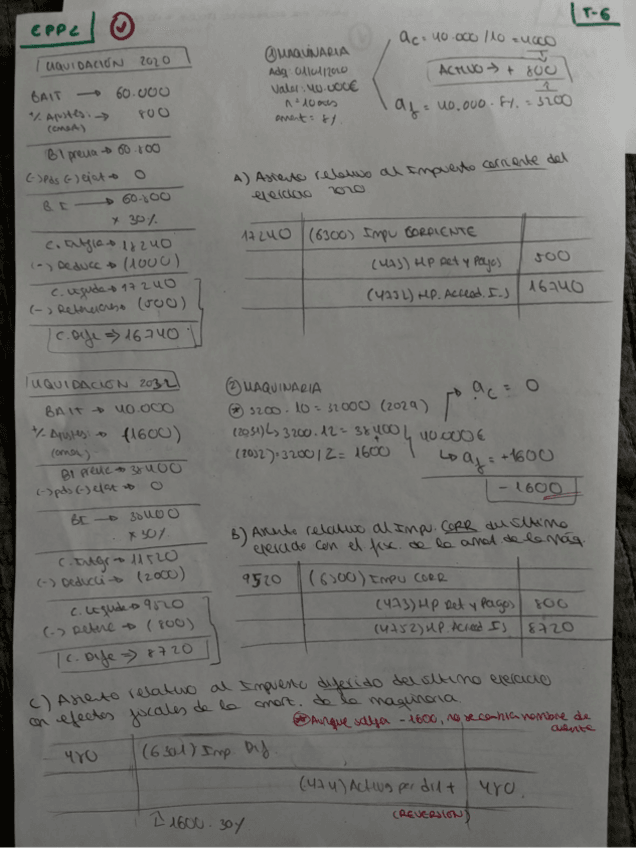 CPPC
T-6
LIQUIDACIÓN 2020
BAIT → 60.000
+/- Ajustes → 800
(amort)
BI previa → 60.800
(-) Bds (-) ejat → 0
BI → 60.800
x 30%
C. Íntegra → 18240
(-) Deducc → (1000)
C. Líquida → 17240
(-) Retenciones → (500)
C. Dife → 16740
① MAQUINARIA
Adq. 01/01/2020
Valor: 40.000€
n = 10 años
amort = 8%
ac = 40.000/10 = 4000
ACTIVO → + 800
af = 40.000 · 8% = 3200
A) Asiento relativo al Impuesto corriente del
ejercicio 2020
17240 (6300) Impu CORRIENTE
(473) HP Ret y Pagos 500
(4752) HP. Acreed. IS 16740
LIQUIDACIÓN 2032
BAIT → 40.000
+/- Ajustes → (1600)
(amort)
BI previa → 38400
→ 0
BI → 38400
x 30%
C. Íntegr → 11520
(-) Deducci → (2000)
C. Líquida → 9520
(-) Retenc → (800)
C. Dife → 8720
② MAQUINARIA
3200 · 10 = 32000 (2029)
(2031) 3200 · 12 = 38400
(2032) = 3200/2 = 1600
40.000€
ac = 0
af = -1600
-1600
B) Asiento relativo al Impu. CORR del último
ejercicio con el fisc. de la amort. de la máq.
9520 (6300) Impu CORR
(473) HP Ret y Pagos 800
(4752) HP Acreed IS 8720
C) Asiento relativo al Impuesto diferido del último ejercicio
con efectos fiscales de la amort. de la maquinaria.
Aunque salga -1600, no se cambia nombre de
cuenta
480 (6301) Imp. Dif
(474) Activos por dif + 480
(REVERSIÓN)
1600 · 30%